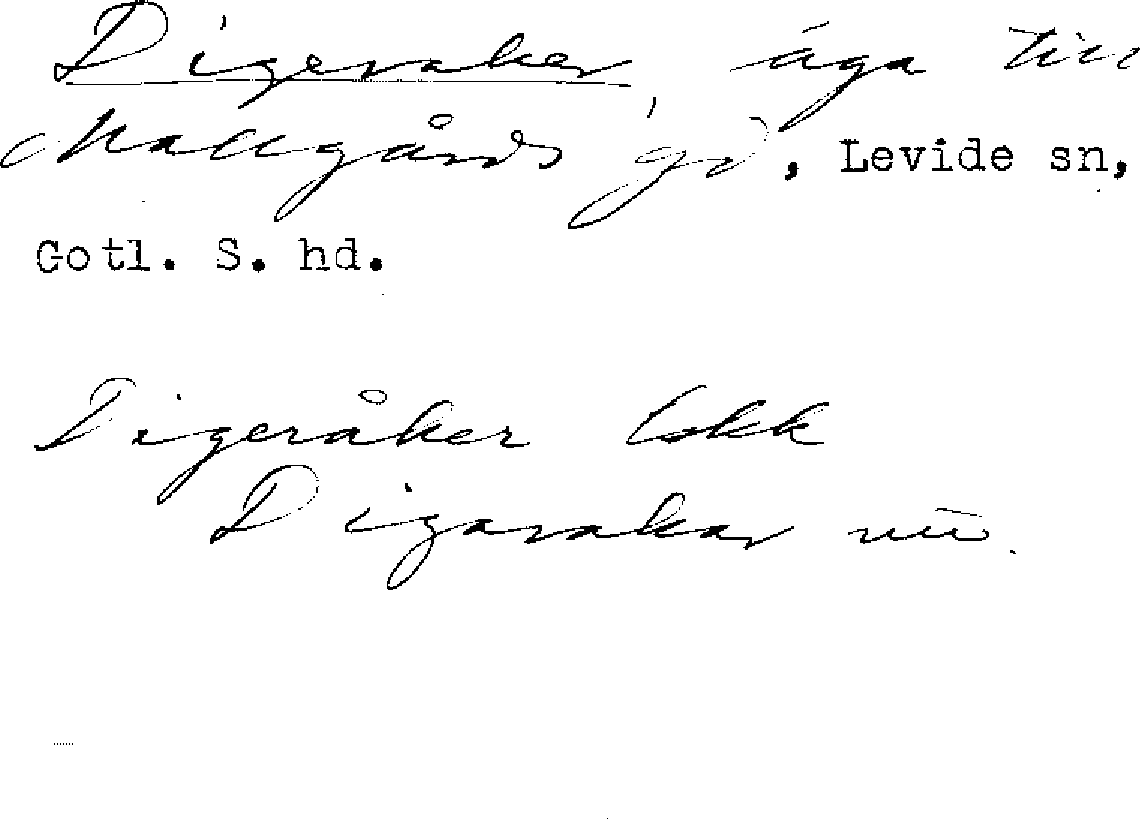 Digeraker, äga till
Mallgårds gd, Levide sn,
Gotl. S. hd.
Digeråker
Digarakar nu.